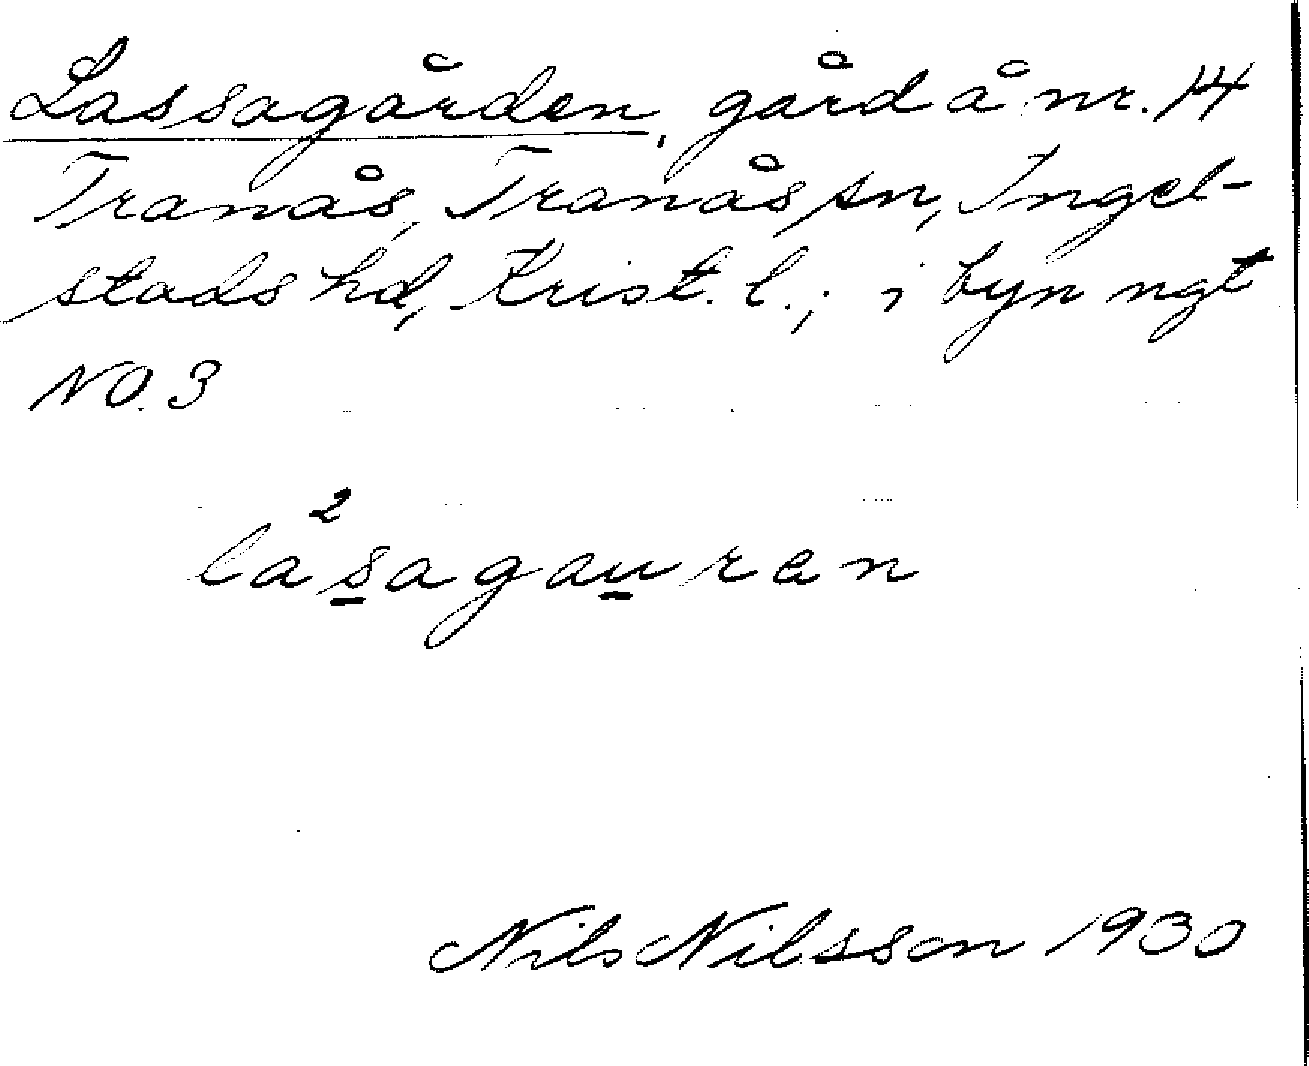 Lassagården, gård å nr. 14
Tranås, Tranås sn, Ingel-
stads hd, Krist. l.; i byn ngt
NO. 3
la²sagauren
Nils Nilsson 1930